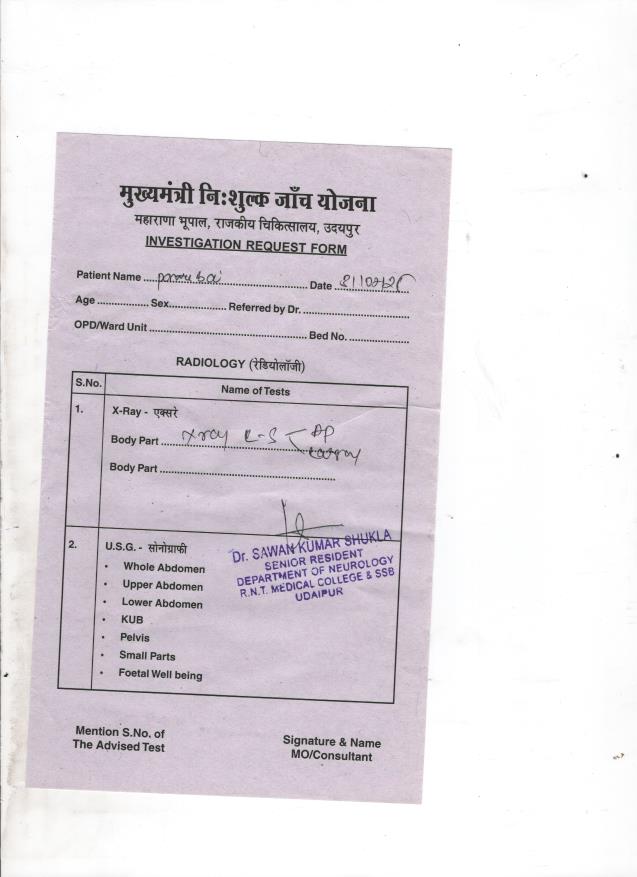 मुख्यमंत्री निःशुल्क जाँच योजना
महाराणा भूपाल, राजकीय चिकित्सालय, उदयपुर
INVESTIGATION REQUEST FORM
Patient Name ..................... Date ...............
Age ............ Sex............ Referred by Dr. ............
OPD/Ward Unit ..................... Bed No. ............
RADIOLOGY (रेडियोलॉजी)
S.No. Name of Tests
1. X-Ray - एक्सरे
Body Part ...... Xray L-S AP
Body Part ......
2. U.S.G. - सोनोग्राफी
• Whole Abdomen
• Upper Abdomen
• Lower Abdomen
• KUB
• Pelvis
• Small Parts
• Foetal Well being
Dr. SAWAN KUMAR SHUKLA
SENIOR RESIDENT
DEPARTMENT OF NEUROLOGY
R.N.T. MEDICAL COLLEGE & SSB
UDAIPUR
Mention S.No. of
The Advised Test
Signature & Name
MO/Consultant